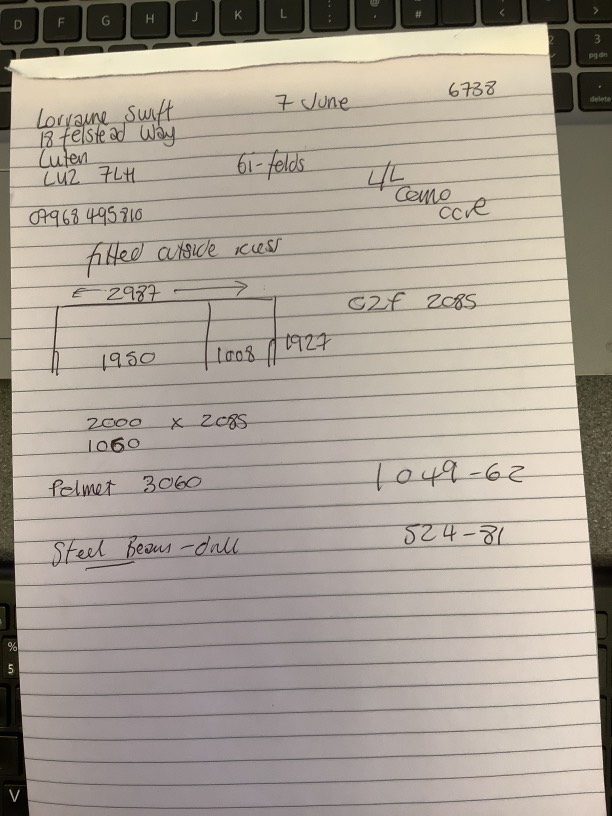 Lorraine Swift
18 felstead Way
Luten
LU2 7LH
7 June
6738
Bi-folds
L/L
Camo
07968 495810
fitted outside recess
2987
1950
1008
1927
C2f 2085
2000 x 2085
1060
Pelmet 3060
1049-62
Steel Beam - drill
524-81
D F G H J K L
%
5
V
3
pg dn
delete